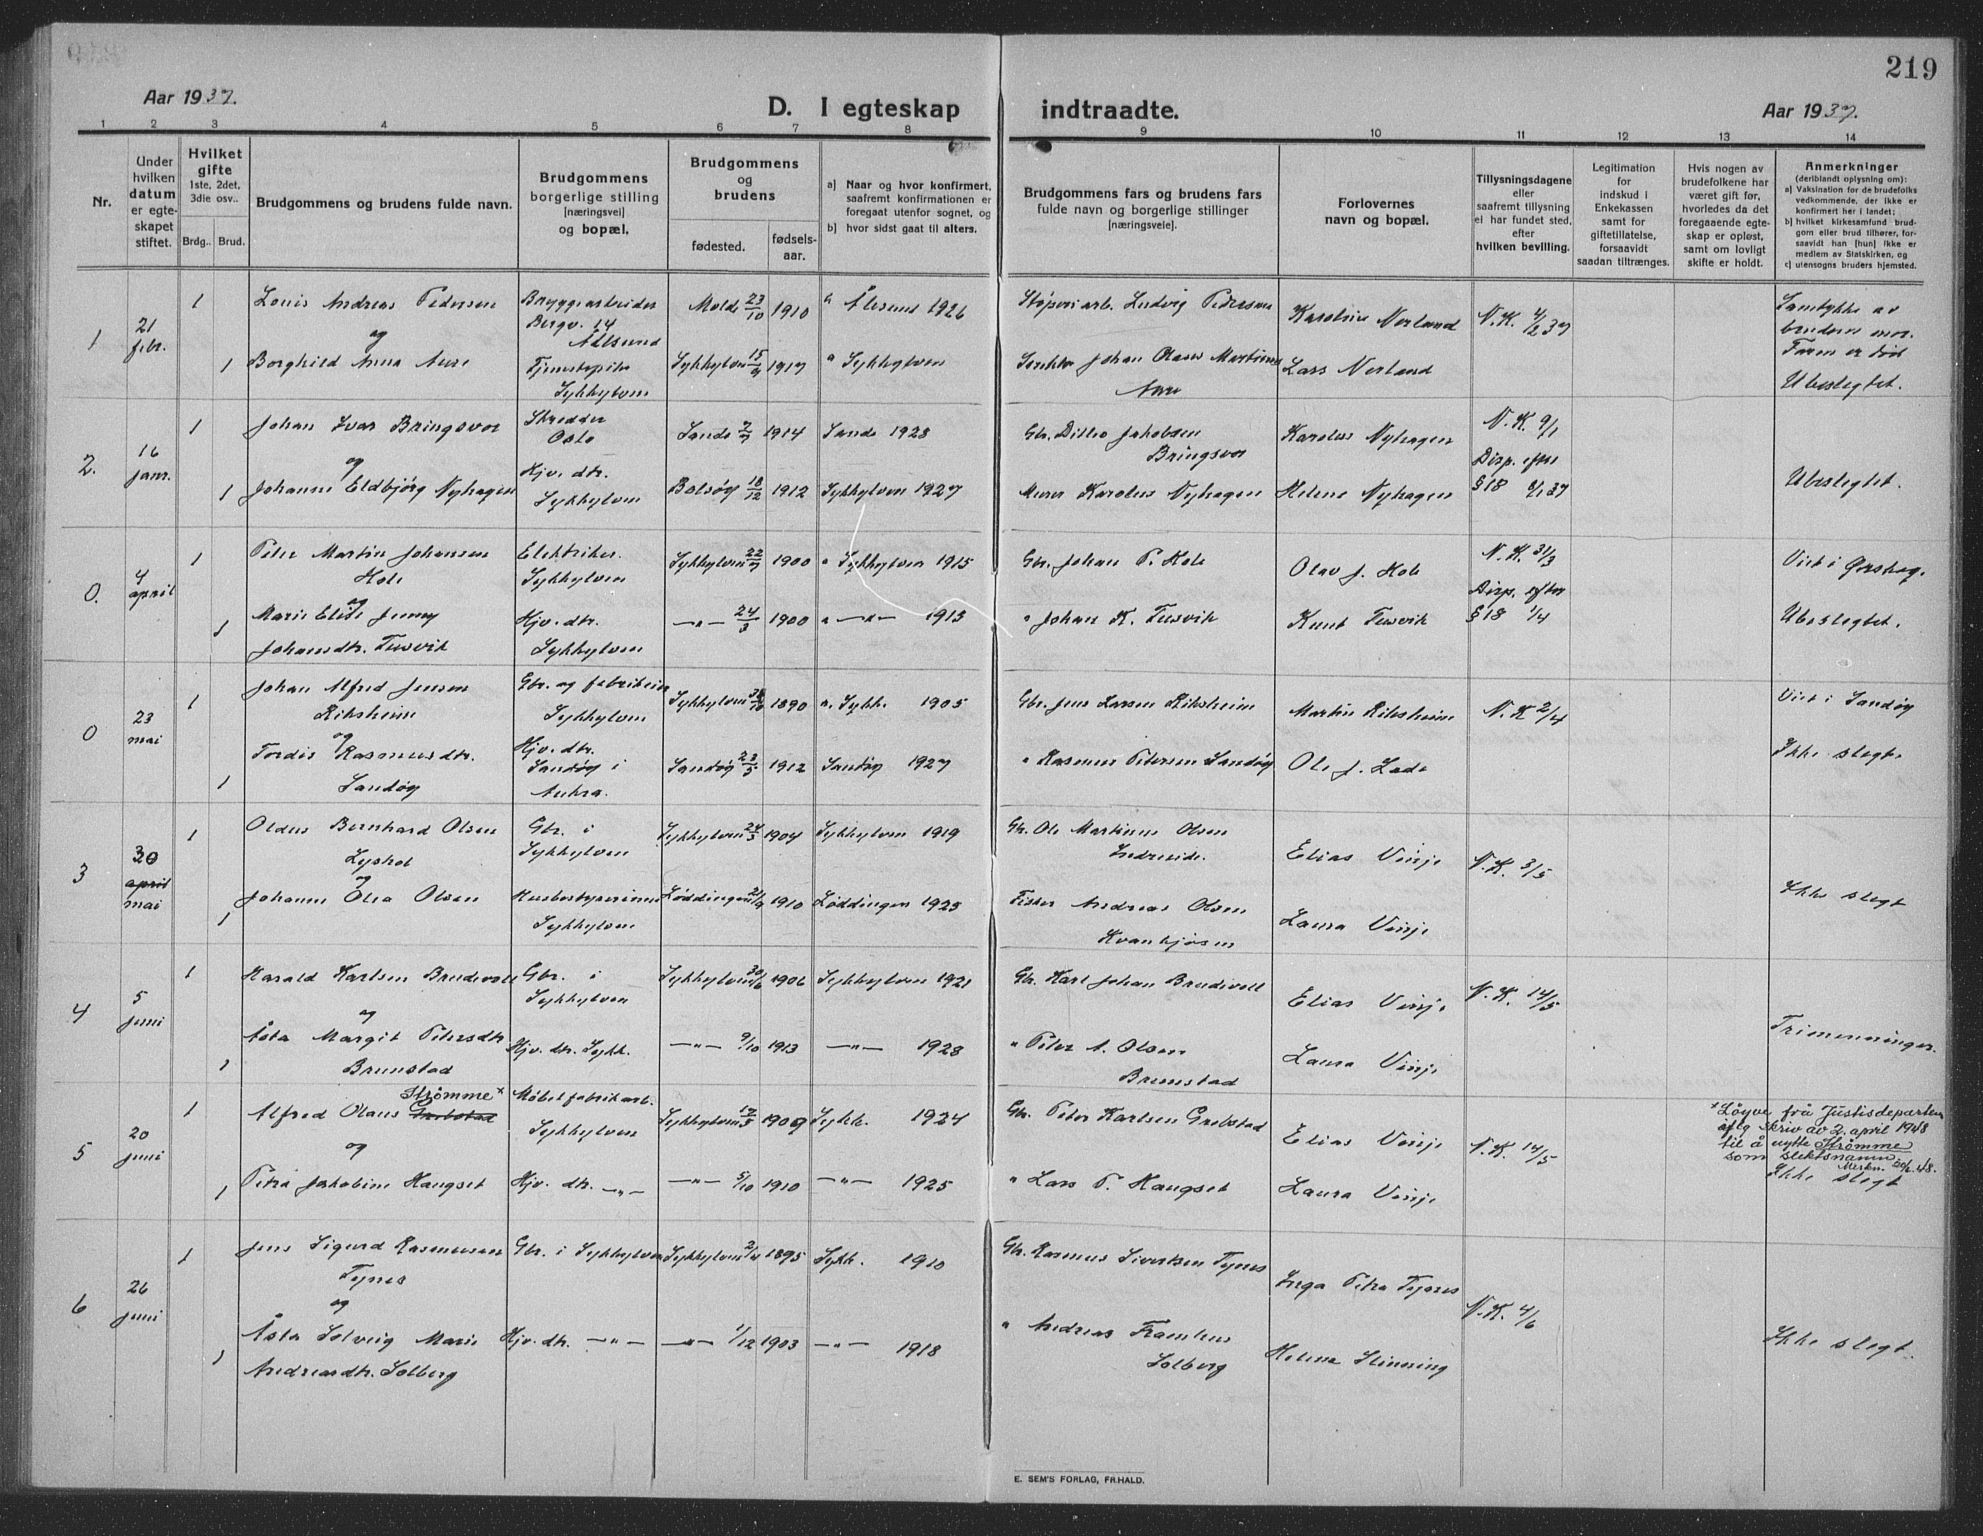 219
Aar 1937.
D. I egteskap indtraadte.
Aar 1937.
1 2 3 4 5 6 7 8 9 10 11 12 13 14
Nr.
Under hvilken datum er egte-skapet stiftet.
Hvilket gifte 1ste, 2det, 3die osv..
Brdg.. Brud.
Brudgommens og brudens fulde navn.
Brudgommens borgerlige stilling [næringsvei] og bopæl.
Brudgommens og brudens
fødested. fødsels-aar.
a) Naar og hvor konfirmert, saafremt konfirmationen er foregaat utenfor sognet, og
b) hvor sidst gaat til alters.
Brudgommens fars og brudens fars fulde navn og borgerlige stillinger [næringsveie].
Forlovernes navn og bopæl.
Tillysningsdagene eller saafremt tillysning ei har fundet sted, efter hvilken bevilling.
Legitimation for indskud i Enkekassen samt for giftetillatelse, forsaavidt saadan tiltrænges.
Hvis nogen av brudefolkene har været gift før, hvorledes da det foregaaende egte-skap er opløst, samt om lovligt skifte er holdt.
Anmerkninger (deriblandt oplysning om):
a) Vaksination for de brudefolks vedkommende, der ikke er konfirmert her i landet;
b) hvilket kirkesamfund brud-gom eller brud tilhører, for-saavidt han [hun] ikke er medlem av Statskirken, og
c) utensogns bruders hjemsted.
1 21 febr. 1 Louis Andreas Pedersen Bryggearbeider Bergv. 14 Ålesund Molde 23/10 1910 a Ålesund 1926 Støperiarb. Ludvig Pedersen Karoline Nerland N.K. 4/2 37 Samtykke av brudens mor. Faren er død
og
1 Borghild Anna Aure Sykkylven 15/9 1917 a Sykkylven Johan Olaus Martinus Aure Lars Nerland Ubeslegtet.
2. 16 janr. 1 Johan Ivar Bringsvor Skredder Oslo Sande 7/7 1914 Sande 1928 Gbr. Ditlev Jakobsen Bringsvor Karolus Nyhagen N.K. 9/1
og
1 Johanne Eldbjørg Nyhagen Hjv. dtr. Sykkylven Bolsøy 18/12 1912 Sykkylven 1927 Murer Karolus Nyhagen Helene Nyhagen Disp. efter § 18 9/1 37 Ubeslegtet.
0. 4 april 1 Peter Martin Johansen Hole Elektriker. Sykkylven Sykkylven 22/7 1900 a Sykkylven 1915 Gbr. Johan P. Hole Olav J. Hole N.K. 31/3 Viet i Ørskog.
og
1 Marie Elise Jenny Johansdtr. Tusvik Hjv. dtr. Sykkylven —"— 24/3 1900 a —"— 1915 " Johan K. Tusvik Knut Tusvik Disp. efter § 18 1/4 Ubeslegtet.
0 23 mai 1 Johan Alfred Jensen Riksheim Gbr. og fabrikeier Sykkylven Sykkylven 1890 a. Sykk. 1905 Gbr. Jens Larsen Riksheim Martin Riksheim N.K 2/4 Viet i Sandøy
og
1 Tordis Rasmusdtr. Sandøy Hjv. dtr. Sandøy i Aukra. Sandøy 23/5 1912 Sandøy 1927 " Rasmus Petersen Sandøy Ole J. Lade Ikke slegt.
3 30 april mai 1 Oldus Bernhard Olsen Lyshol Gbr. i Sykkylven Sykkylven 24/3 1904 Sykkylven 1919 Gbr. Ole Martinus Olsen Indreeide. Elias Vinje N.K. 3/5
og
1 Johanne Olea Olsen Husbestyrerinne Sykkylven Løddingen 21/9 1910 Løddingen 1925 Fisker Andreas Olsen Kvankjøsen Laura Vinje Ikke slegt
4 5 juni 1 Harald Karlsen Brudevoll Gbr. i Sykkylven Sykkylven 30/6 1906 Sykkylven 1921 Gbr. Karl Johan Brudevoll Elias Vinje N.K. 14/5
og
1 Åsta Margit Petersdtr. Brunstad Hjv. dtr. Sykk. —"— 9/10 1913 —"— 1928 " Peter A. Olsen Brunstad Laura Vinje Trimenninger.
5 20 juni 1 Alfred Olaus Grebstad Strømme x Møbelfabrikarb. Sykkylven Sykkylven 17/5 1909 Sykk. 1924 Gbr. Peter Karlsen Grebstad Elias Vinje N.K. 14/5 x Løyve frå Justisdepartem ifølg skriv av 2. april 1948 til å nytte Strømme som slektsnamn. Merkn. 20/4.48.
og
1 Petra Jakobine Haugset Hjv. dtr. —"— —"— 5/10 1910 —"— 1925 " Lars P. Haugset Laura Vinje Ikke slegt
6 26 juni 1 Jens Sigurd Rasmussen Tynes Gbr. i Sykkylven Sykkylven 2/4 1895 Sykk. 1910 Gbr. Rasmus Sivertsen Tynes Inga Petra Tynes N.K. 4/6
og
1 Åsta Solveig Marie Andreasdtr. Solberg Hjv. dtr. —"— —"— 1/12 1903 —"— 1918 " Andreas Framhus Solberg Helene Slinning Ikke slegt.
E. SEM'S FORLAG, FR.HALD.